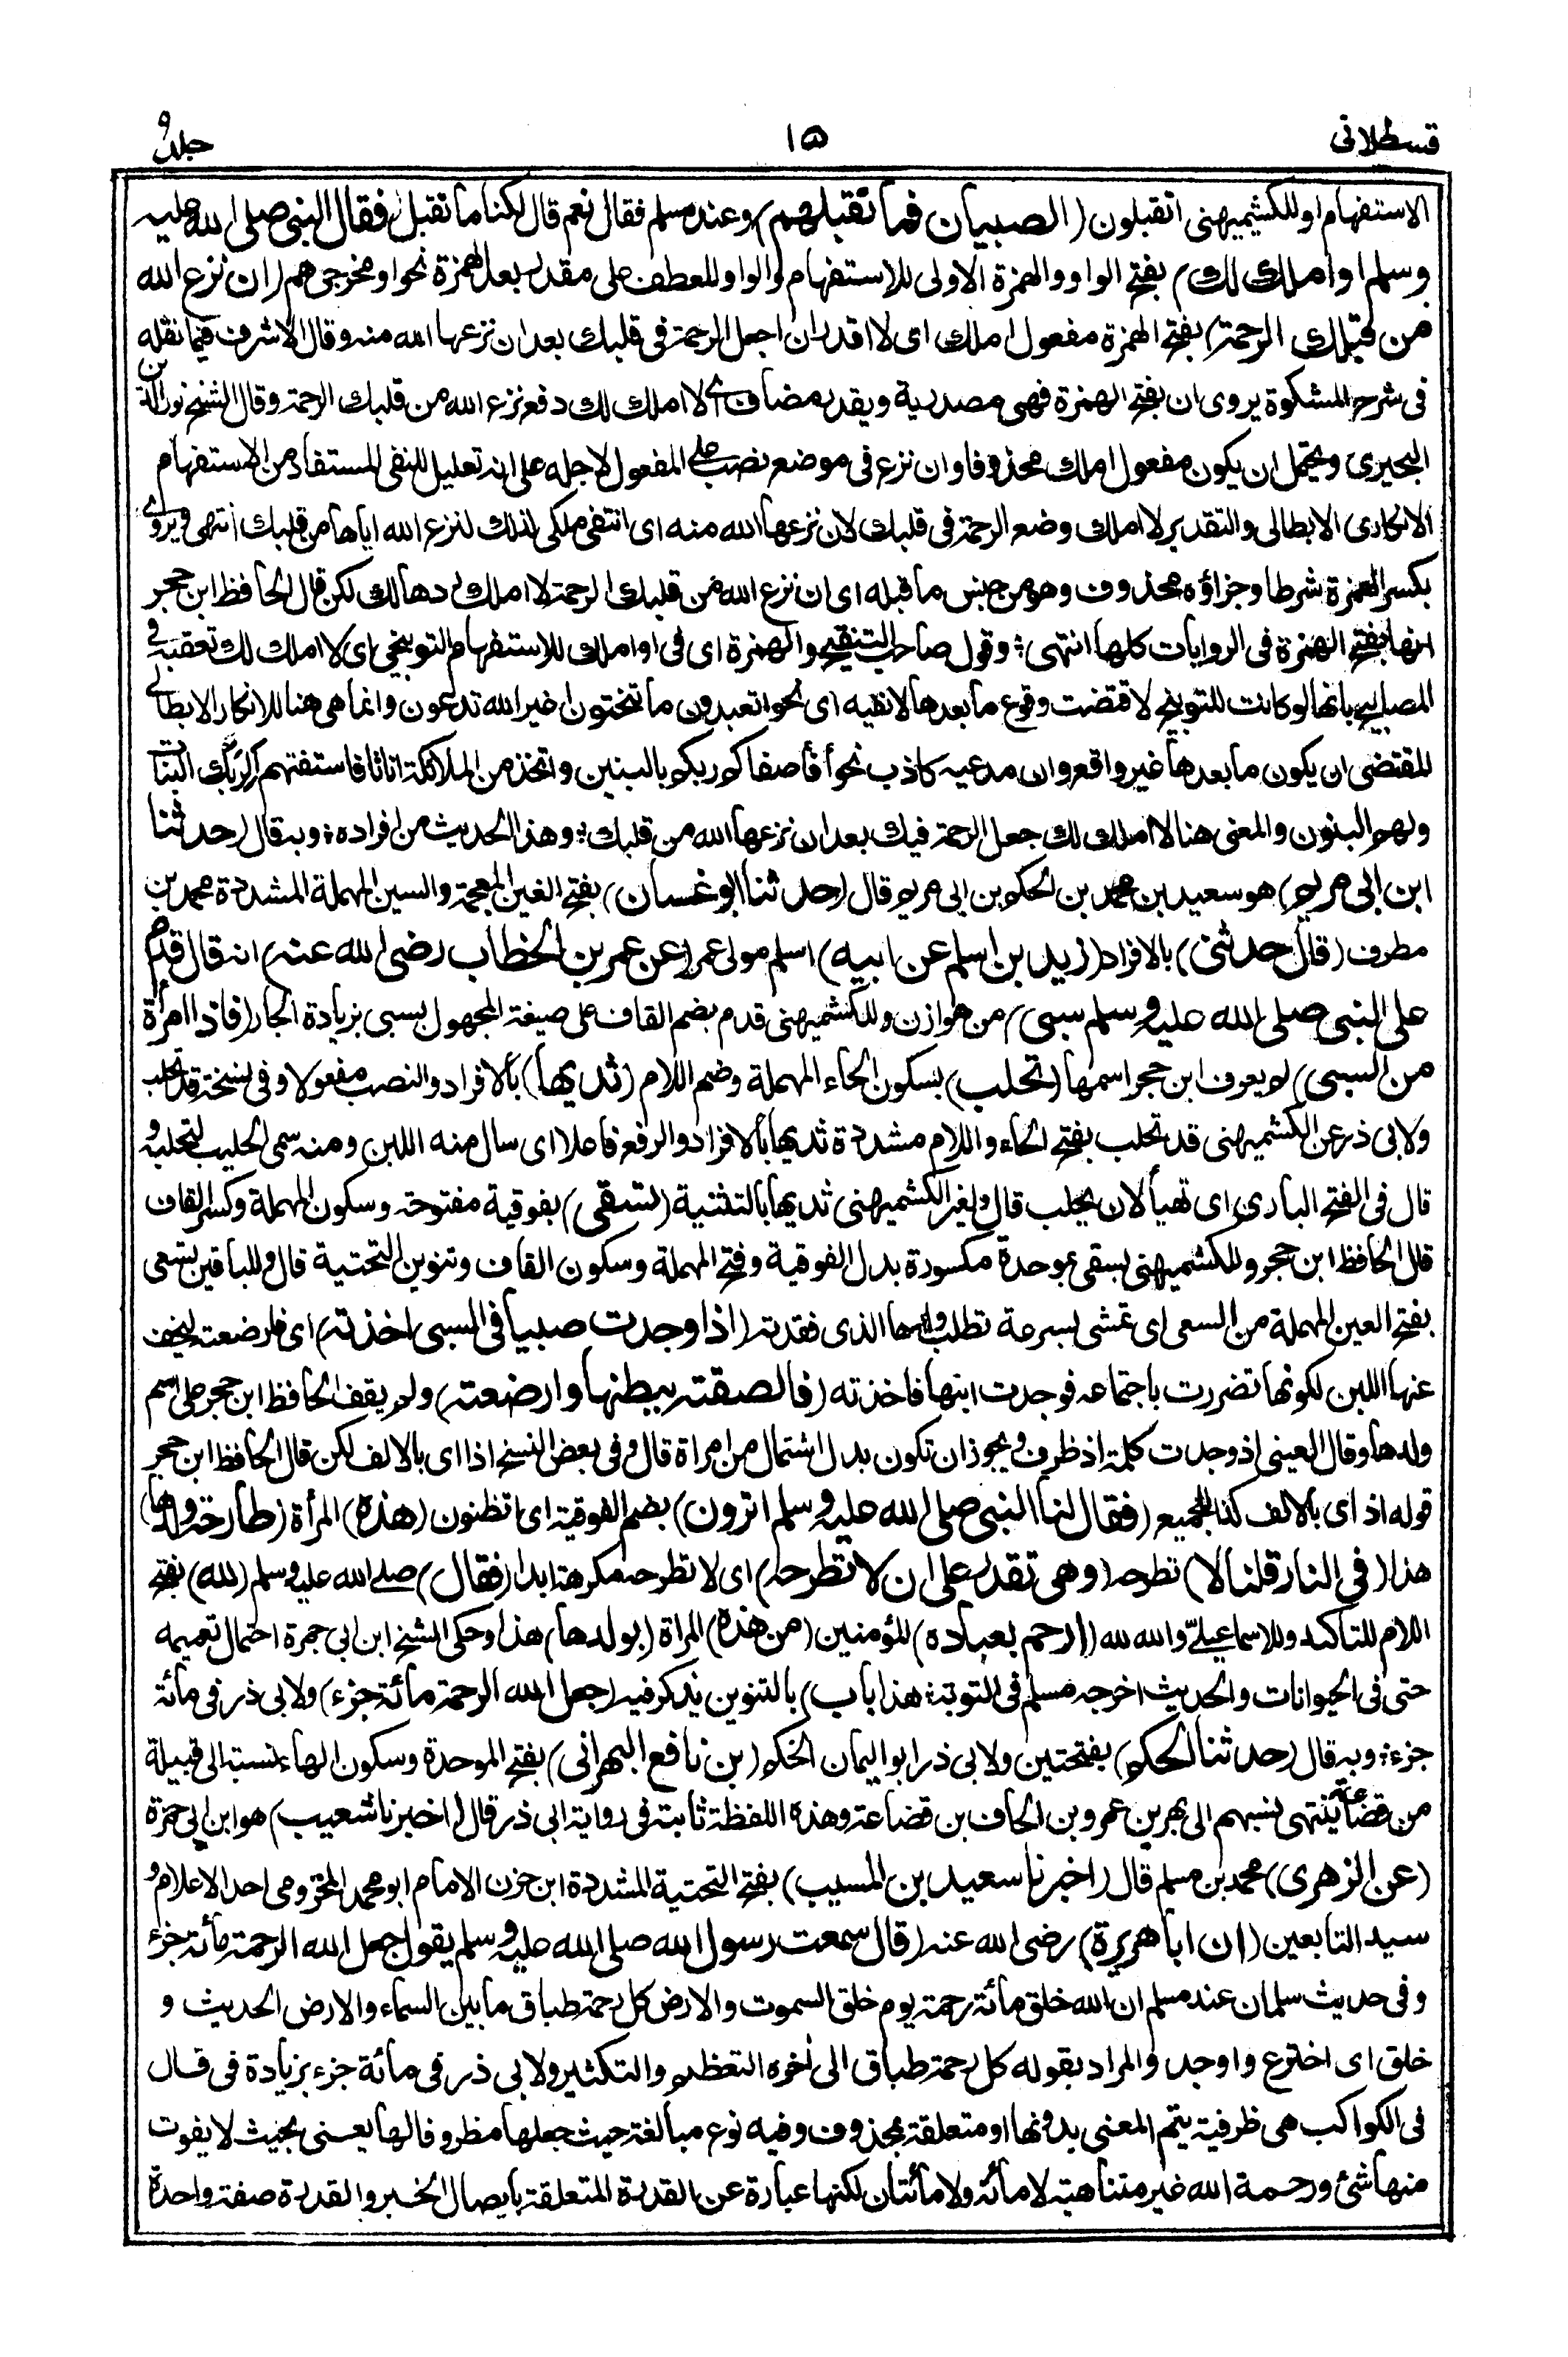 قسطلانی
١٥
جلد ٩
الاستفهام وللكشميهنى اتقبلون (الصبيان فما نقبلهم) وعند مسلم فقال نعم قال لكنا ما نقبل (فقال النبى صلى الله عليه
وسلم او املك لك) بفتح الواو والهمزة الاولى للاستفهام والواو للعطف على مقدر بعد الهمزة نحو او مخرجى هم (ان نزع الله
من قلبك الرحمة) بفتح الهمزة مفعول املك اى لا اقدر ان اجعل الرحمة فى قلبك بعد ان نزعها الله منه وقال الاشرف فيما نقله
فى شرح المشكوة يروى ان بفتح الهمزة فهى مصدرية ويقدر مضاف اى لا املك لك دفع نزع الله من قلبك الرحمة وقال الشيخ نور الدين
البحيرى ويحتمل ان يكون مفعول املك محذوفا وان نزع فى موضع نصب على المفعول لاجله على انه تعليل للنفى المستفاد من الاستفهام
الانكارى الابطالى والتقدير لا املك وضع الرحمة فى قلبك لان نزعها الله منه اى انتفى ملكى لذلك لنزع الله اياها من قلبك انتهى ويروى
بكسر الهمزة شرطا وجزاؤه محذوف وهو من جنس ما قبله اى ان نزع الله من قلبك الرحمة لا املك ردها لك لكن قال الحافظ ابن حجر
انها بفتح الهمزة فى الروايات كلها انتهى ؛ وقول صاحب التنقيح والهمزة اى فى او املك للاستفهام التوبيخى اى لا املك لك تعقبه فى
المصابيح بانها لو كانت للتوبيخ لاقتضت وقوع ما بعدها لانفيه اى نحو اتعبدون ما تنحتون اغير الله تدعون وانما هى هنا للانكار الابطالى
المقتضى ان يكون ما بعدها غير واقع وان مدعيه كاذب نحو أفأصفاكم ربكم بالبنين واتخذ من الملائكة اناثا فاستفتهم الربك البنات
ولهم البنون والمعنى هنا لا املك لك جعل الرحمة فيك بعد ان نزعها الله من قلبك ؛ وهذا الحديث من افراده ؛ وبه قال (حدثنا
ابن ابى مريم) هو سعيد بن محمد بن الحكم بن ابى مريم قال (حدثنا ابو غسان) بفتح الغين المعجمة والسين المهملة المشددة محمد بن
مطرف (قال حدثنى) بالافراد (زيد بن اسلم عن ابيه) اسلم مولى عمر (عن عمر بن الخطاب رضى الله عنه) انه قال قدم
على النبى صلى الله عليه وسلم سبى) من هوازن وللكشميهنى قدم بضم القاف على صيغة المجهول بسبى بزيادة الجار (فاذا امرأة
من السبى) لم يعرف ابن حجر اسمها (تحلب) بسكون الحاء المهملة وضم اللام (ثديها) بالافراد والنصب مفعولا وفى نسخة قد تحلب
ولابى ذر عن الكشميهنى قد تحلب بفتح الحاء واللام مشددة ثديها بالافراد والرفع فاعلا اى سال منه اللبن ومنه سمى الحليب لتحلبه و
قال فى الفتح البارى اى تهيأ لان يحلب قال ولغير الكشميهنى ثديها بالتثنية (تسقى) بفوقية مفتوحة وسكون المهملة وكسر القاف
قال الحافظ ابن حجر وللكشميهنى بسقى بموحدة مكسورة بدل الفوقية وفتح المهملة وسكون القاف وتنوين التحتية قال وللباقين تسعى
بفتح العين المهملة من السعى اى تمشى بسرعة تطلب ولدها الذى فقدته (اذا وجدت صبيا فى السبى اخذته) اى فارضعته ليخف
عنها اللبن لكونها تضررت باجتماعه فوجدت ابنها فاخذته (فالصقته ببطنها وارضعته) ولم يقف الحافظ ابن حجر على اسم
ولدها وقال العينى اذ وجدت كلمة اذ ظرف ويجوز ان تكون بدل اشتمال من امراة قال وفى بعض النسخ اذا اى بالالف لكن قال الحافظ ابن حجر
قوله اذ اى بالالف كذا للجميع (فقال لنا النبى صلى الله عليه وسلم اترون) بضم الفوقية اى اتظنون (هذه) المرأة (طارحة ولدها)
هذا (فى النار قلنا لا) تطرحه (وهى تقدر على ان لا تطرحه) اى لا تطرحه مكرهة ابدا (فقال) صلى الله عليه وسلم (لله) بفتح
اللام للتأكيد وللاسماعيلى والله لله (ارحم بعباده) المؤمنين (من هذه) المراة (بولدها) هذا وحكى الشيخ ابن ابى جمرة احتمال تعميمه
حتى فى الحيوانات والحديث اخرجه مسلم فى التوبة ؛ هذا باب) بالتنوين يذكر فيه (جعل الله الرحمة مائة جزء) ولابى ذر فى مائة
جزء ؛ وبه قال (حدثنا الحكم) بفتحتين ولابى ذر ابو اليمان الحكم (بن نافع البهرانى) بفتح الموحدة وسكون الهاء نسبة الى قبيلة
من قضاعة ينتهى نسبهم الى بهر بن عمرو بن الحاف بن قضاعة وهذه اللفظة ثابتة فى رواية ابى ذر قال (اخبرنا شعيب) هو ابن ابى حمزة
(عن الزهرى) محمد بن مسلم قال (اخبرنا سعيد بن المسيب) بفتح التحتية المشددة ابن حزن الامام ابو محمد المخزومى احد الاعلام و
سيد التابعين (ان ابا هريرة) رضى الله عنه (قال سمعت رسول الله صلى الله عليه وسلم يقول جعل الله الرحمة مائة جزء
وفى حديث سلمان عند مسلم ان الله خلق مائة رحمة يوم خلق السموت والارض كل رحمة طباق ما بين السماء والارض الحديث و
خلق اى اخترع واوجد والمراد بقوله كل رحمة طباق الى اخره التعظيم والتكثير ولابى ذر فى مائة جزء بزيادة فى قال
فى الكواكب هى ظرفية يتم المعنى بدونها او متعلقة بمحذوف وفيه نوع مبالغة حيث جعلها مظروفا لها يعنى بحيث لا يفوت
منها شئ ورحمة الله غير متناهية لا مائة ولا مائتان لكنها عبارة عن القدرة المتعلقة بايصال الخير والقدرة صفة واحدة